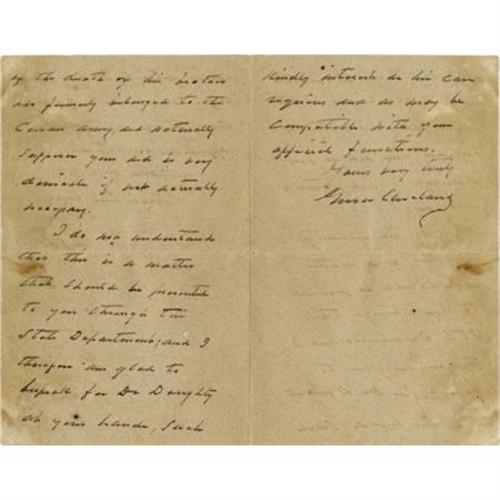 by the death of his brother
was formerly belonged to the
army, and naturally
your aid is very
desirable if not actually
necessary.
I do not understand
that this is a matter
that should be presented
to you through the
State Department, and I
therefore am glad to
bespeak for Dr Doughty
at your hands, such
kindly interest as his case
requires and as may be
compatible with your
official functions.
Yours very truly
Grover Cleveland